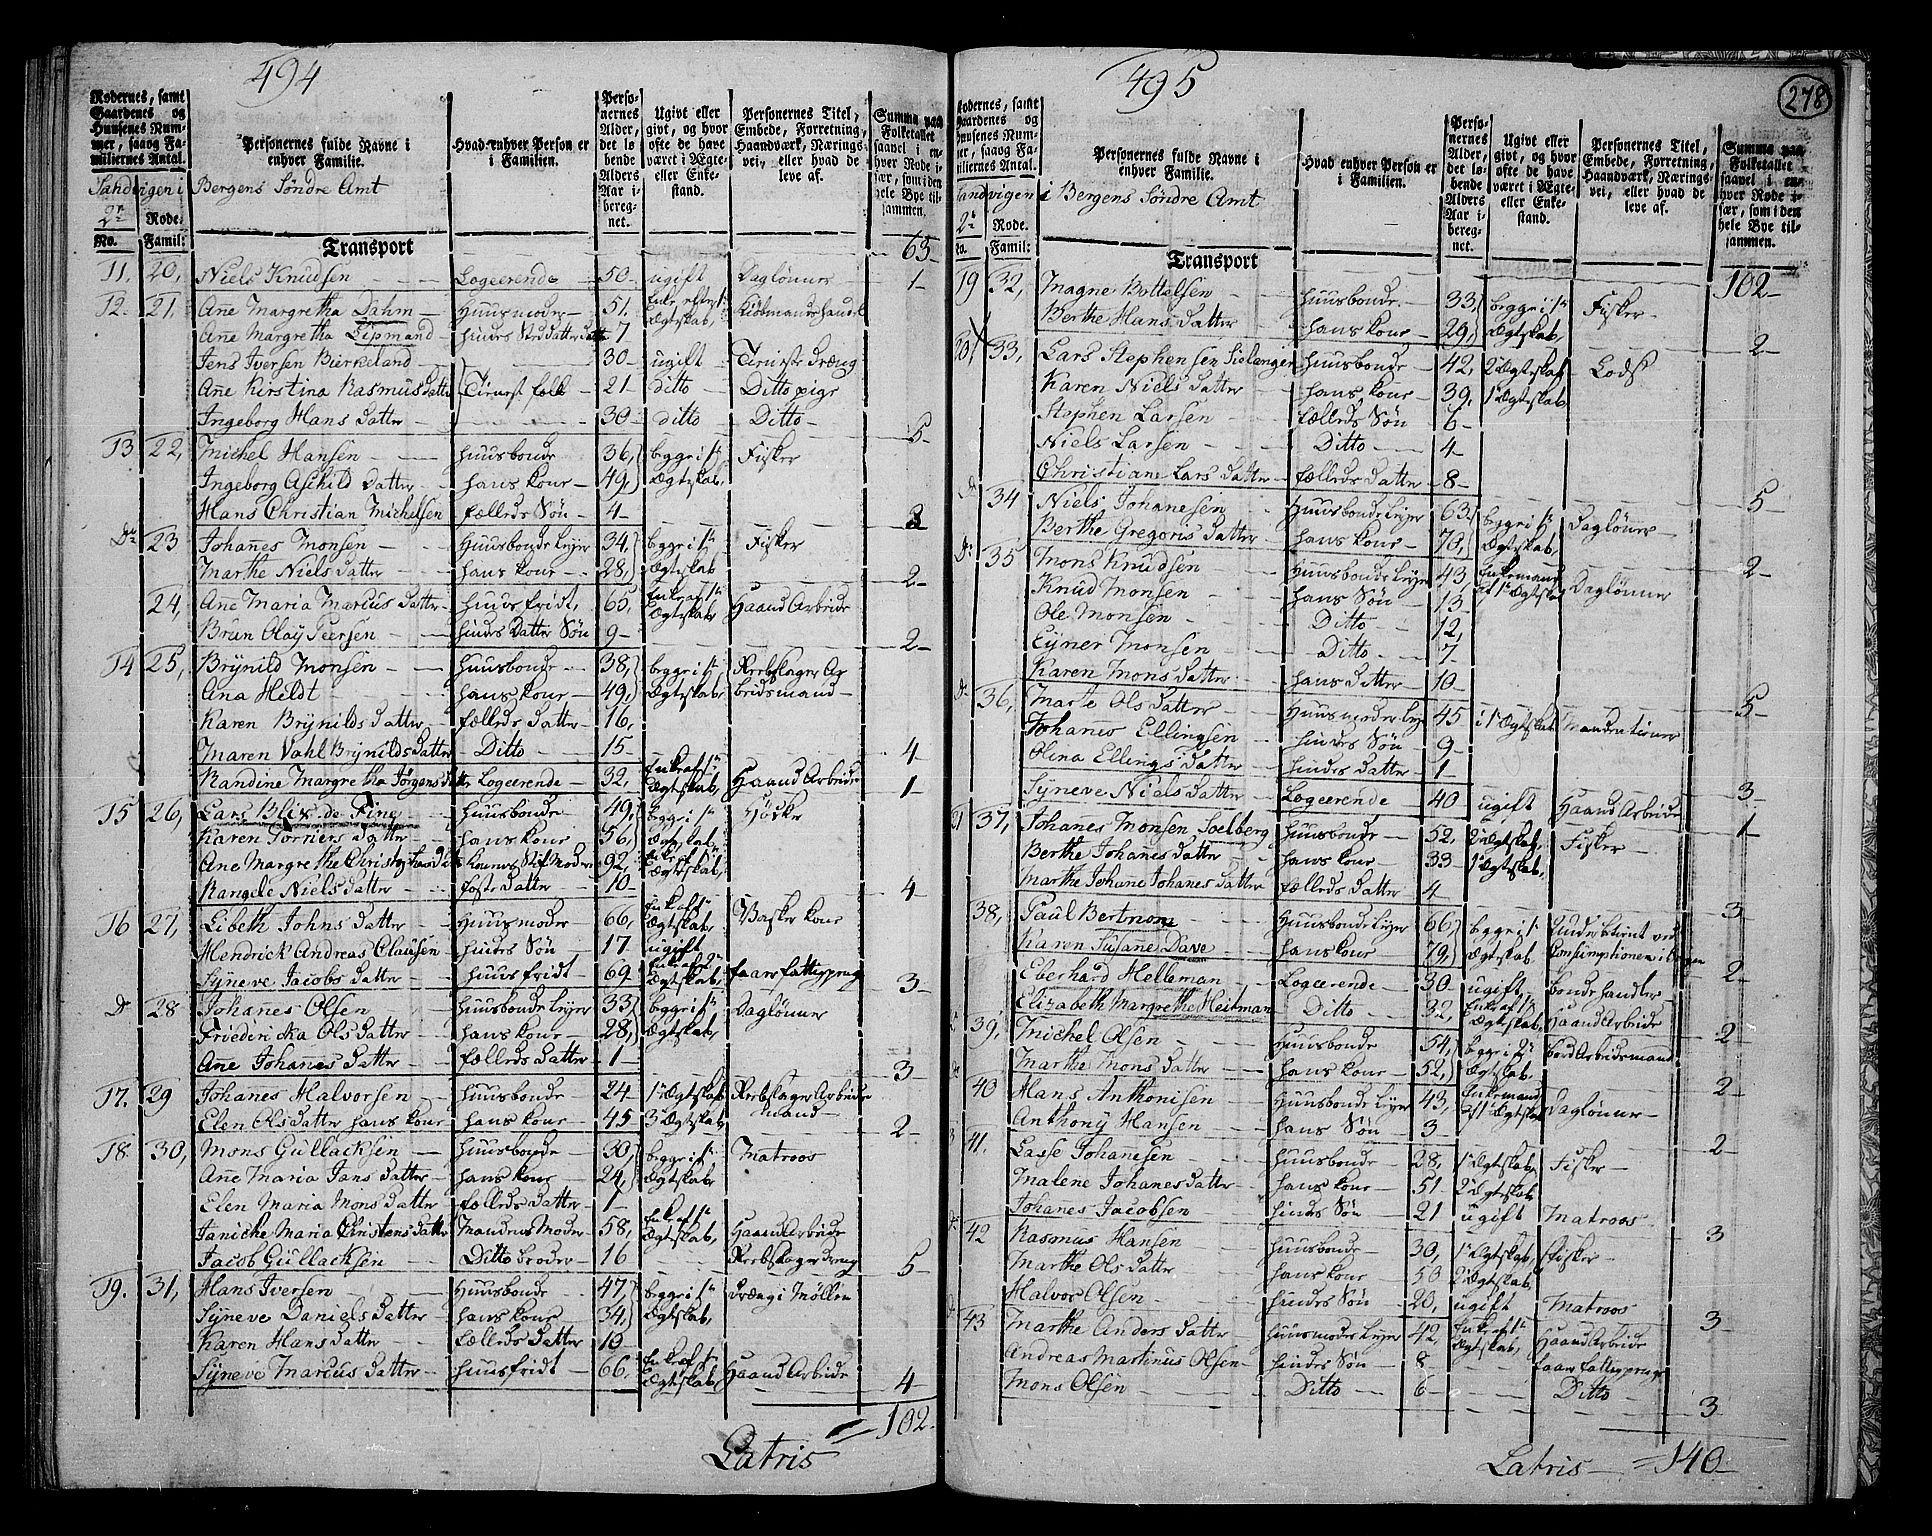 494
Rodernes, samt Gaardenes og Huusenes Nummer, saavog Familiernes Antal.
Personernes fulde Navne i enhver Familie.
Hvad enhver Person er i Familien.
Personernes Alder, det løbende Alders Aar iberegnet.
Ugivt eller givt, og hvor ofte de have været i Ægte- eller Enkestand.
Personernes Titel, Embede, Forretning, Haandværk, Næringsvei, eller hvad de leve af.
Summa paa Folketallet saavel i enhver Rode især, som i den hele Bye tilsammen.
Sandvigen i Bergens Söndre Amt
2n Rode:
No. Famil: Transport 63
11. 20, Niels Knudsen Logeerende 50 ugift Daglönner 1
12. 21, Ane Margretha Dahm Huusmoder 51. Enke eftr 1t Ægteskab, Kiöbmandshandel
Ane Margretha Lipmand hindes Stedatter datt 7
Jens Iversen Birkeland 30 ugift Tieniste dreng
Ane Kirstina Rasmusdatter Tienest folk 21 ditto Ditto pige
Ingeborg Hans datter 30 ditto Ditto 5
13 22, Michel Hansen Huusbonde 36, begge i 1t Fisker
Ingeborg Aschild datter hans kone 49, Ægteskab,
Hans Christian Michelsen fælleds Sön 4 3
Do 23 Johanes Monsen Huusbonde Lejer 34, begge i 1t Fisker
Marthe Niels datter hans kone 28, Ægteskab 2
24, Ane Maria Marcus datter huus fridt, 65, Enke af 1t Ægteskab Haand Arbeide
Brun Olay Peersen hindes datter Sön 9 2
14 25, Brynild Monsen Huusbonde 38, begge i 1t Reebslager Ar
Ana Hildt hans kone 49, Ægteskab, beidsmand
Karen Brynilds datter fælleds datter 16,
Maren Vahl Brynilds datter Ditto 15 4
Randine Margretha Jörgensdatter Logeerende 32, Enke af 1t Ægteskab, Haand Arbeide 1
15 26, Lars Blix de Fine Huusbonde 49, begge i 1t Höcker
Karen Torriers datter hans kone 56, Ægteskab
Ane Margrethe Christophersd konens Stifmoder 92, Enke af 1t Ægteskab,
Rangele Niels datter foster datter 10 4
16 27, Libeth Johns datter Huusmoder 66, Enke af 1t Ægteskab, Vasker kone
Hendrick Andreas Clausen hindes Sön 17 ugift
Syneve Jacobs datter huus fridt 69 Enke af 2t Ægteskab, faaer fattigpenge 3
Do 28 Johanes Olsen Huusbonde Lejer 33, begge i 1t Daglönner
Friederika Ols datter hans kone 28, Ægteskab,
Ane Johanes datter fælleds datter 1 3
17. 29 Johanes Halvorsen Huusbonde 24 1t Ægteskab Reebslager Arbeids
Elen Olsdatter hans kone hans kone 45 3t Ægteskab, mand 2
18. 30, Mons Gullacksen Huusbonde 30, begge i 1t Matroos
Ane Maria Jans datter hans kone 24, Ægteskab,
Elen Maria Mons datter fælleds datter 1
Janicke Maria Christensdatter Mandens Moder 58, Enke af 1t Ægteskab, Haand Arbeide
Jacob Gullacksen Ditto broder 16 Reebslager dreng 5
19. 31, Hans Iversen Huusbonde 47, begge i 1t Dreng i Möllen
Syneve Daniels datter hans kone 34, Ægteskab,
Karen Hans datter fælleds datter 10
Syneve Marcus datter huusfridt 66, Enke af 1t Ægteskab, Haand Arbeide 4
Latris = 102
495
278
Rodernes, samt Gaardenes og Huusenes Nummer, saavog Familiernes Antal.
Personernes fulde Navne i enhver Familie.
Hvad enhver Person er i Familien.
Personernes Alder, det løbende Alders Aar iberegnet.
Ugivt eller givt, og hvor ofte de have været i Ægte- eller Enkestand.
Personernes Titel, Embede, Forretning, Haandværk, Næringsvei, eller hvad de leve af.
Summa paa Folketallet saavel i enhver Rode især, som i den hele Bye tilsammen.
Sandvigen i Bergens Söndre Amt
2t Rode.
No. Famil: Transport 102
19 32, Magne Bottelsen Huusbonde 33, begge i 1t Fisker
Berthe Hans datter hans kone 29, Ægteskab, 2
20 33, Lars Stephensen Sielanger Huusbonde 42, 2t Ægteskab Lods
Karen Niels datter hans kone 39, 1t Ægteskab
Stephen Larsen fælleds Sön 6
Niels Larsen Ditto 4
Christiane Lars datter fælleds datter 8 5
Do 34 Niels Johanesen Huusbonde Lejer 63, begge i 1t Daglönner
Berthe Gregoris datter hans kone 70, Ægteskab, 2
Do 35 Mons Knudsen Huusbonde Lejer 43, Enkemand af 1t Ægteskab Daglönner
Knud Monsen hans Sön 13
Ole Monsen Ditto 12,
Ejner Monsen Ditto 7
Karen Mons datter hans datter 10 5
Do 36, Marte Ols datter Huusmoder Lejer 45 i 1t Ægteskab
Johanes Ellingsen hindes Sön 9
Olina Ellings datter hindes datter 1 3
Syneve Niels datter Logeerende 40 ugift Haand Arbeide 1
21 37, Johanes Monsen Soelberg Huusbonde 52, 2t Ægteskab, Fisker
Berthe Johanes datter hans kone 33 1t Ægteskab,
Marthe Johane Johanes datter fælleds datter 4 3
38, Paul Bertnom Huusbonde Lejer 66, begge i 1t Underbetient ved
Karen Susane Dave hans kone 79, Ægteskab Consumptionen i Bergen 2
Eberhard Helleman Logeerende 30 ugift bondehandler
Elizabeth Margrethe Heitman Ditto 32, Enke af 1t Ægteskab, Haand Arbeide 2
39, Michel Olsen Huusbonde 54, begge i 2t bord Arbeidsmand
Marthe Mons datter hans kone 52, Ægteskab, 2
40 Hans Anthonisen Huusbonde Lejer 43, Enkemand af 1t Ægteskab Daglönner
Anthony Hansen hans Sön 3 2
41. Lasse Johanesen Huusbonde 28, 1t Ægteskab, Fisker
Malene Johanes datter hans kone 51 2t Ægteskab
Johanes Jacobsen hindes Sön 21 ugift Matroos 3
42 Rasmus Hansen Huusbonde 30, 1t Ægteskab, Fisker
Marthe Ols datter hans kone 50 2t Ægteskab,
Halvor Olsen hindes Sön 20, ugift Matroos 3
43 Marthe Anders datter Huusmoder Lejer 42, Enke af 1t Ægteskab, Haand Arbeide
Andreas Martinus Olsen hindes Sön 8 faaer fattigpenge
Mons Olsen Ditto 6 Ditto 3
Latris = 140